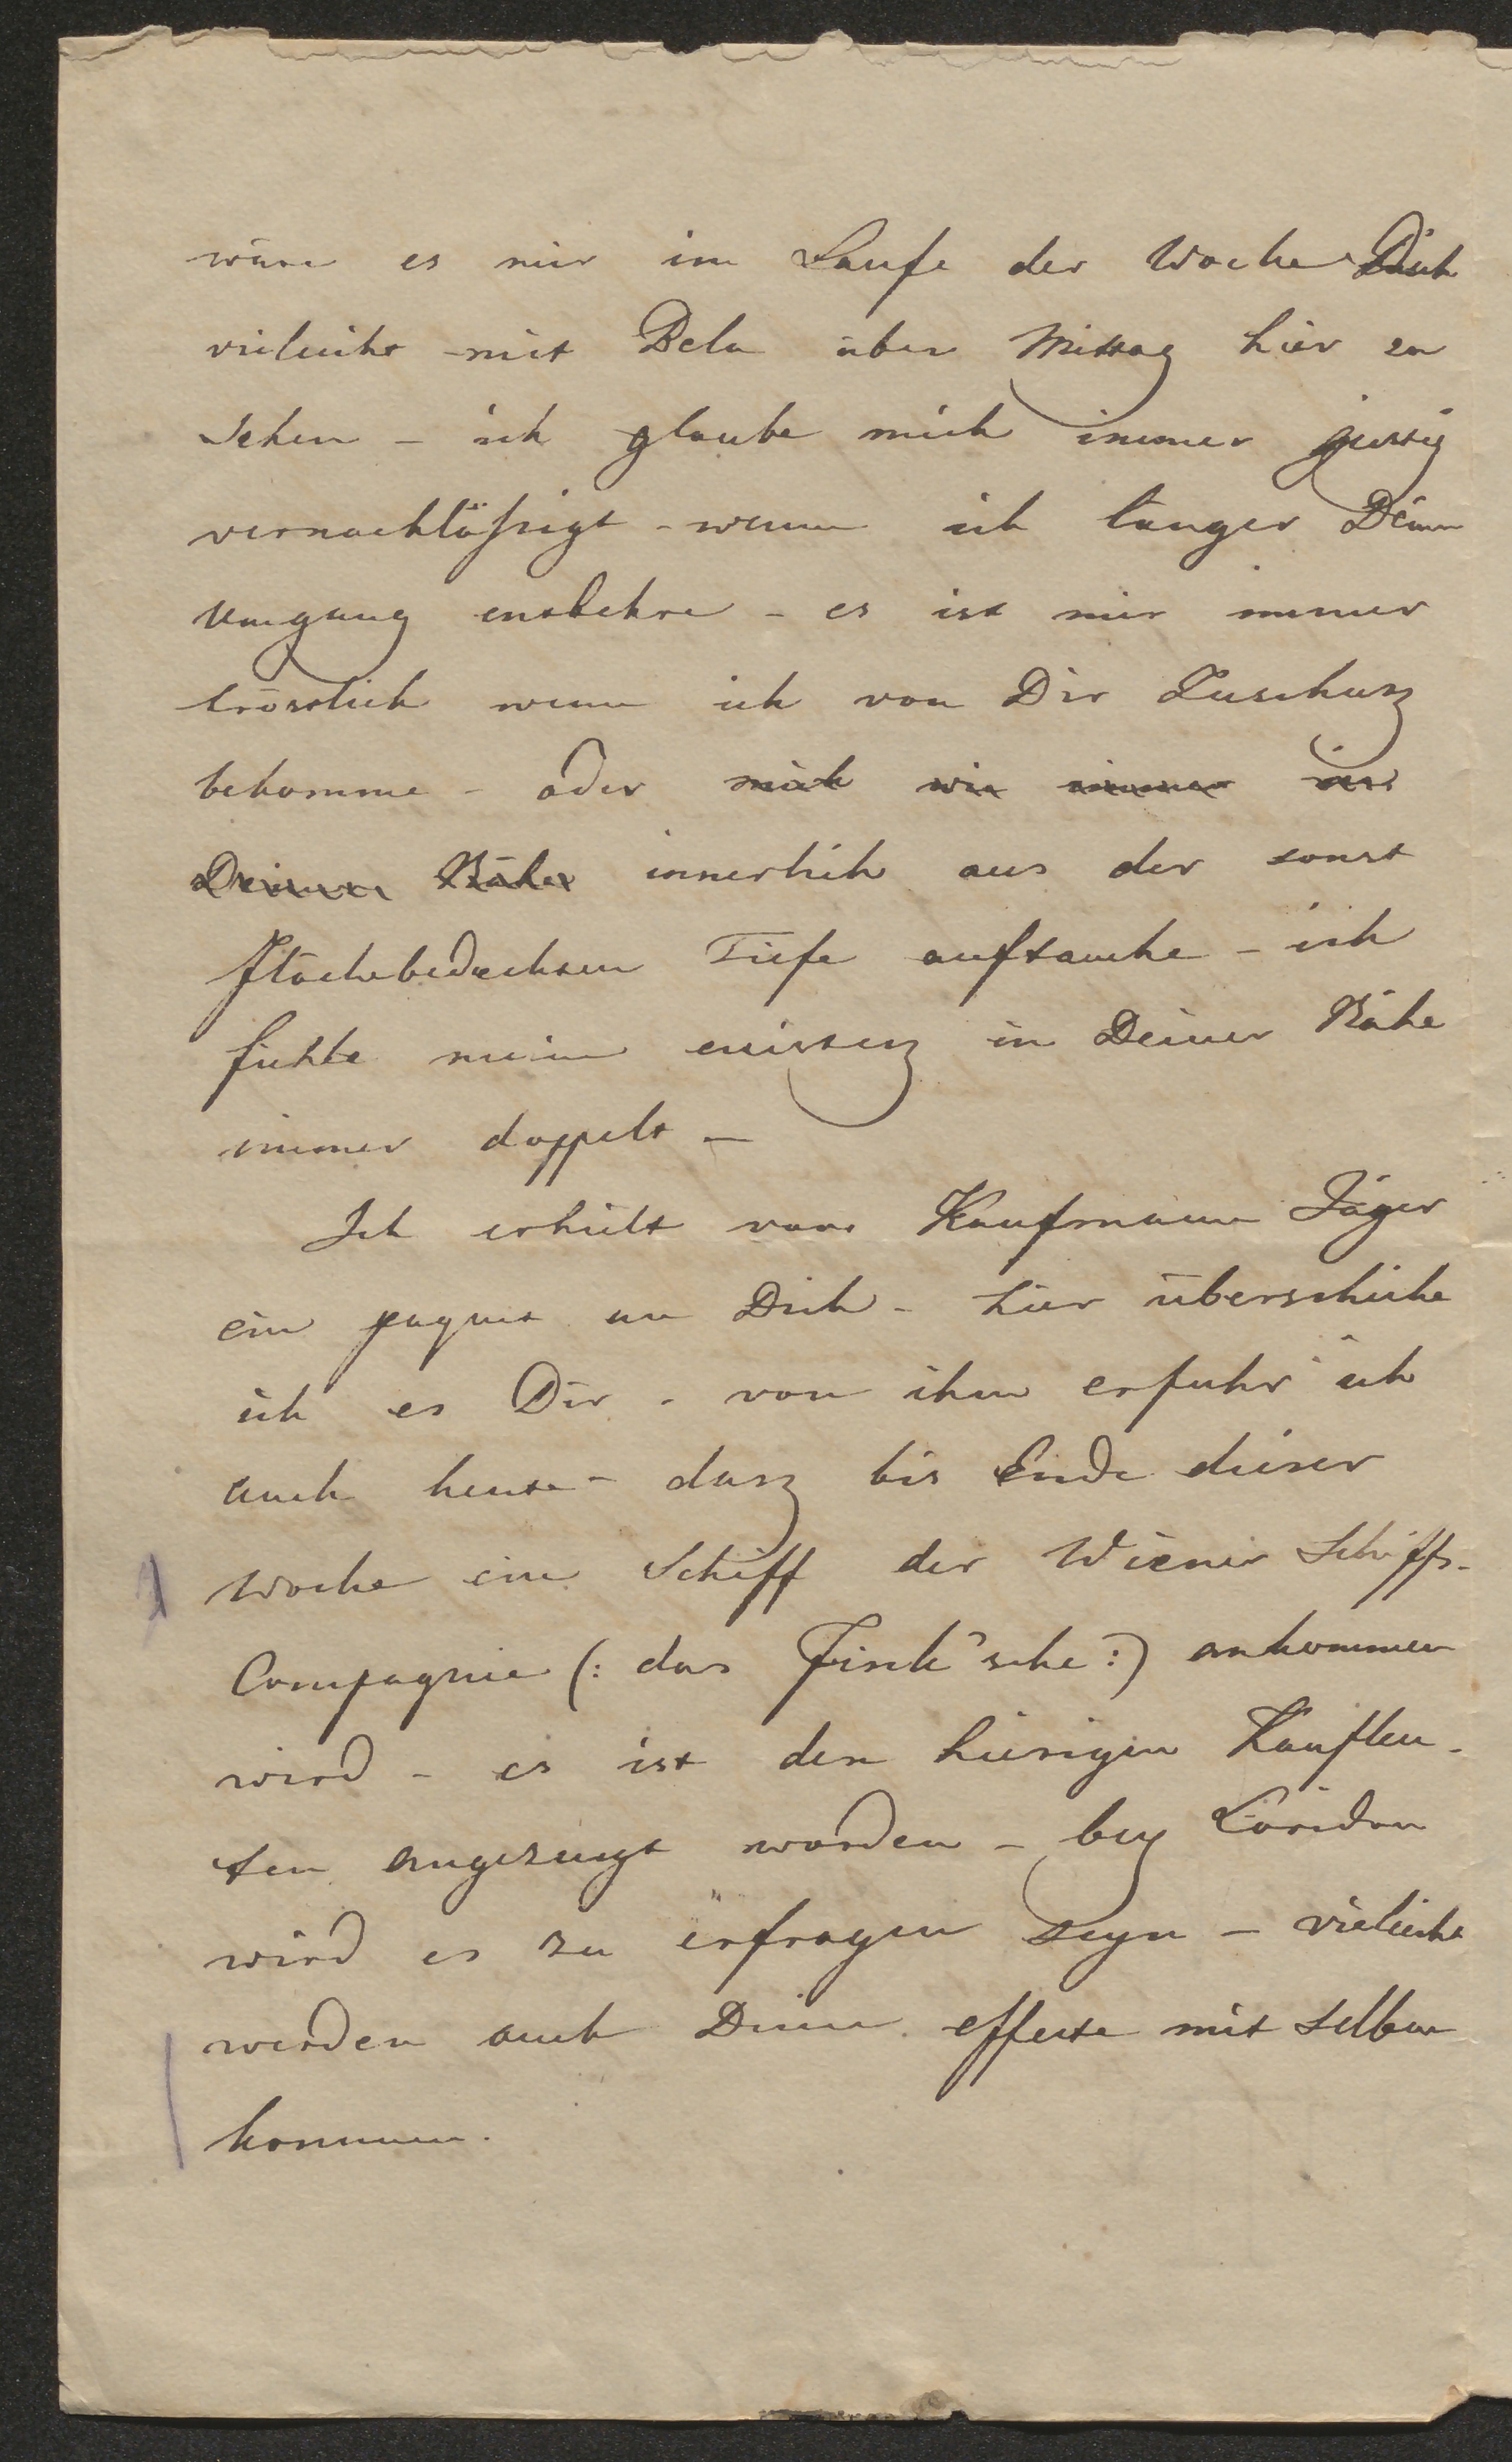 wäre es mir im Laufe der Woche Dich
vieleicht mit Bela über Mittag hier zu
sehen – ich glaube mich immer geistig
vernachläßigt – wenn ich länger Deinen
Umgang entbehre – es ist mir immer
tröstlich wenn ich von Dir Zuschusz
bekomme – oder mich wie immer in
Deiner Nähe innerlich aus der sonst
flächebedeckten Tiefe auftauche – ich
fühle meine existenz in Deiner Nähe
immer doppelt –
Ich erhielt vom Kaufmann Jäger
ein paquet an Dich – hier überschicke
ich es Dir – von ihm erfuhr ich
auch heute – dasz bis Ende dieser
Woche ein Schiff der Wiener Schiffs-
Compagnie (: das Fink'sche :) ankommen
wird – es ist den hiesigen Kaufleu-
ten angezeigt worden – bey
wird es zu erfragen seyn – vieleicht
werden auch Deine effecte mit selben
kommen.